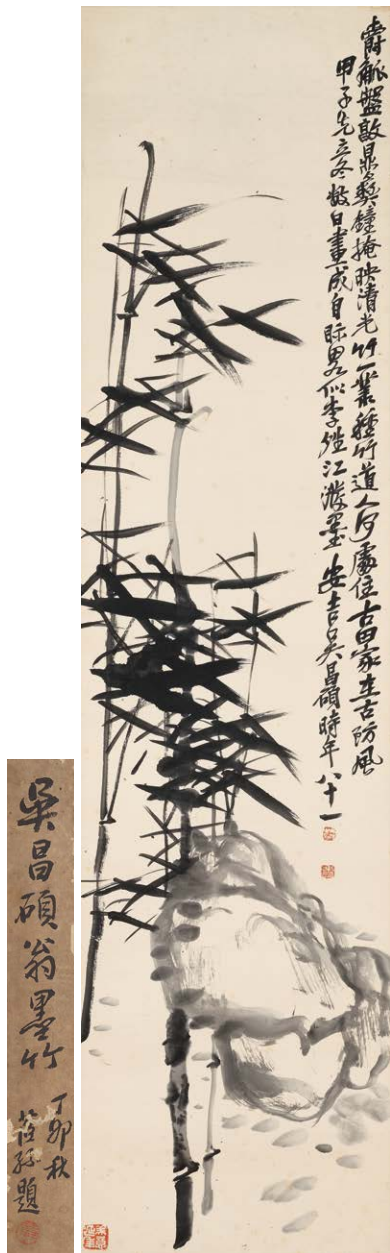 爵觚盤敦鼎彝鐘掩映清光竹一叢種竹道人何處住古田家在古防風
甲子先立冬數日畫成自眎略似李鱓江潑墨安吉吳昌碩時年八十一
吳昌碩翁墨竹
丁卯秋
題